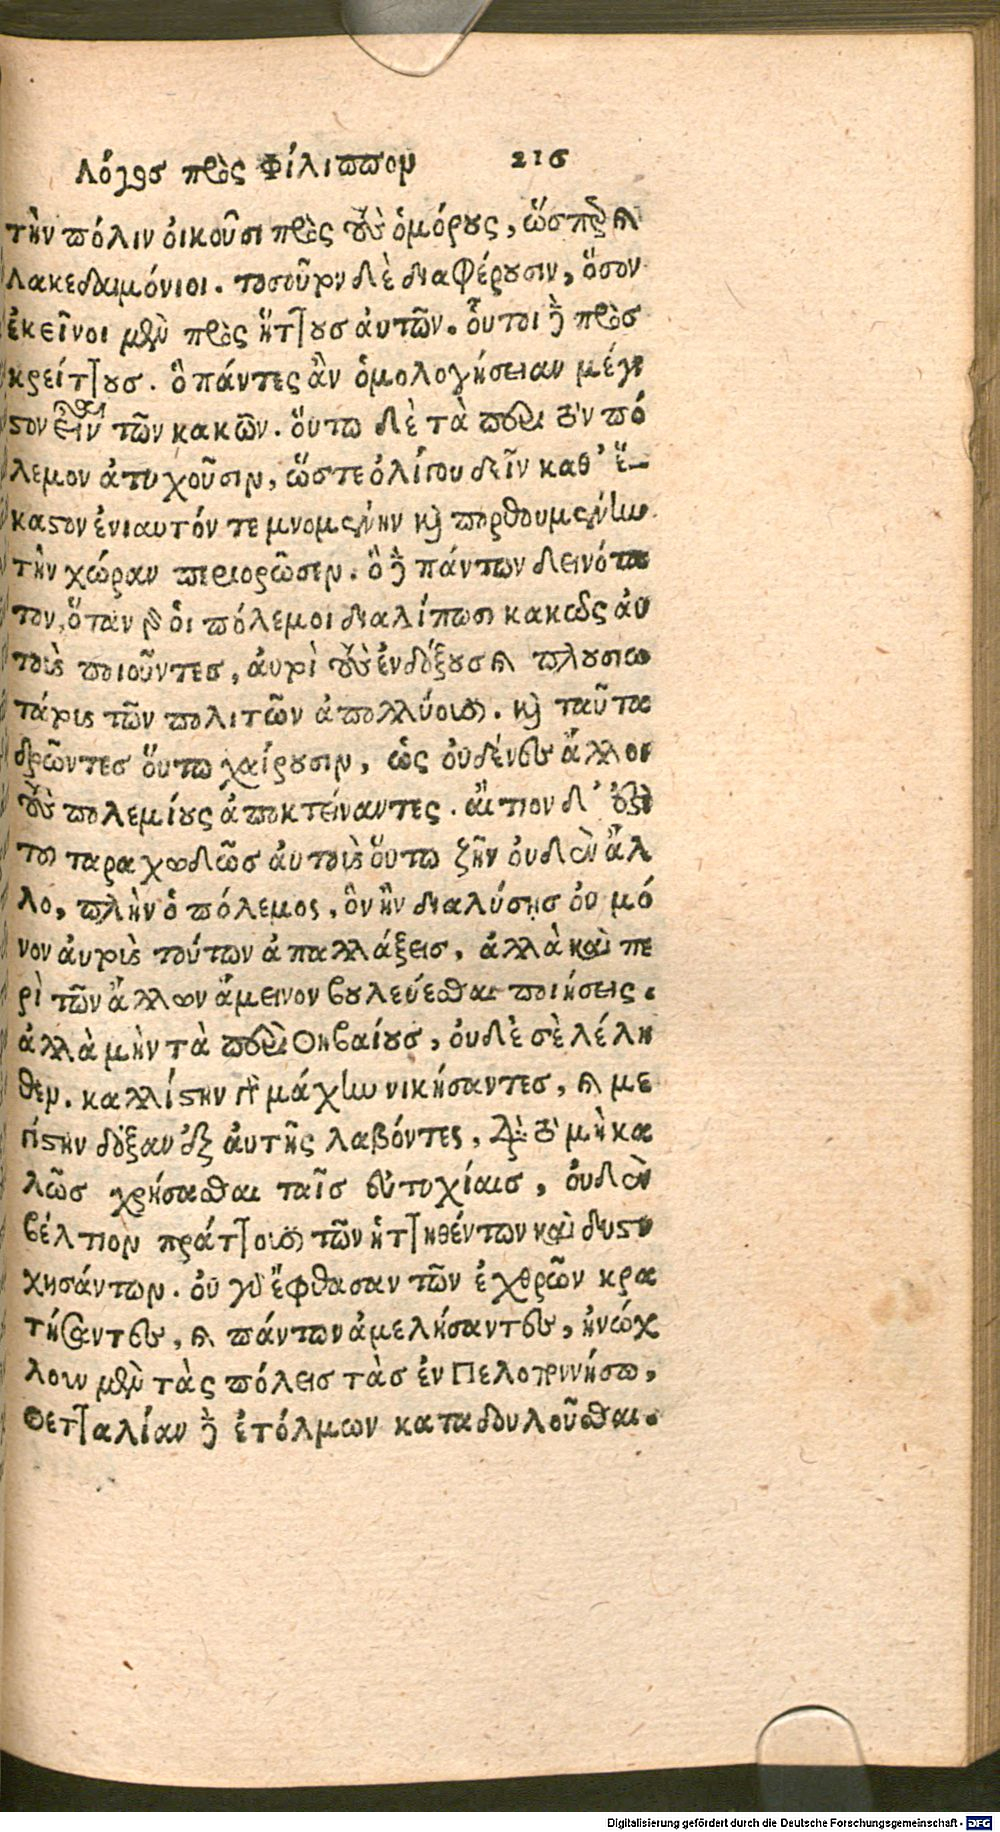 Λόγος πρὸς Φίλιππον 215
τὴν πόλιν οἰκοῦσι πρὸς τοὺς ὁμόρους, ὥσπερ καὶ
Λακεδαιμόνιοι. τοσοῦτον δὲ διαφέρουσιν, ὅσον
ἐκεῖνοι μὲν πρὸς ἥττους ἀυτῶν. οὗτοι δὲ πρὸς
κρείττους. ὃ πάντες ἂν ὁμολογήσειαν μέγι
στον εἶναι τῶν κακῶν. ὅυτω δὲ τὰ περὶ τὸν πό
λεμον ἀτυχοῦσιν, ὥστε ὀλίγου δεῖν καθ' ἕ-
καστον ἐνιαυτόν τεμνομένην καὶ πορθουμένην
τὴν χώραν περιορῶσιν. ὃ δὲ πάντων δεινότα
τον, ὅταν γὰρ ὁι πόλεμοι διαλίπωσι κακῶς ἀυ
τοὺς ποιοῦντες, ἀυτοὶ τοὺς ἐνδόξους καὶ πλουσιω
τάτους τῶν πολιτῶν ἀπολλύουσι. καὶ ταῦτα
δρῶντες ὅυτω χαίρουσιν, ὡς ὀυδένες ἄλλοι
τοὺς πολεμίους ἀποκτείναντες. ἄιτιον δ' ἐστὶ
τοῦ ταραχωδῶς ἀυτοὺς ὅυτω ζῆν ὀυδὲν ἄλ
λο, πλὴν ὁ πόλεμος, ὃν ἢν διαλύσῃς ὀυ μό
νον ἀυτοὺς τούτων ἀπαλλάξεις, ἀλλὰ καὶ πε
ρὶ τῶν ἄλλων ἄμεινον βουλεύεσθαι ποιήσεις.
ἀλλὰ μὴν τὰ περὶ Θηβαίους, ὀυδὲ σὲ λέλη
θεν. καλλίστην γὰρ μάχην νικήσαντες, καὶ με
γίστην δόξαν ἐξ ἀυτῆς λαβόντες, διὰ τὸ μὴ κα
λῶς χρήσασθαι ταῖς ἐυτυχίαις, ὀυδὲν
βέλτιον πράττουσι τῶν ἡττηθέντων καὶ δυστυ
χησάντων. ὀυ γὰρ ἔφθασαν τῶν ἐχθρῶν κρα
τήσαντες, καὶ πάντων ἀμελήσαντες, ἠνώχ
λουν μὲν τὰς πόλεις τὰς ἐν Πελοποννήσῳ,
Θετταλίαν δὲ ἐτόλμων καταδουλοῦσθαι.
Digitalisierung gefördert durch die Deutsche Forschungsgemeinschaft - DFG